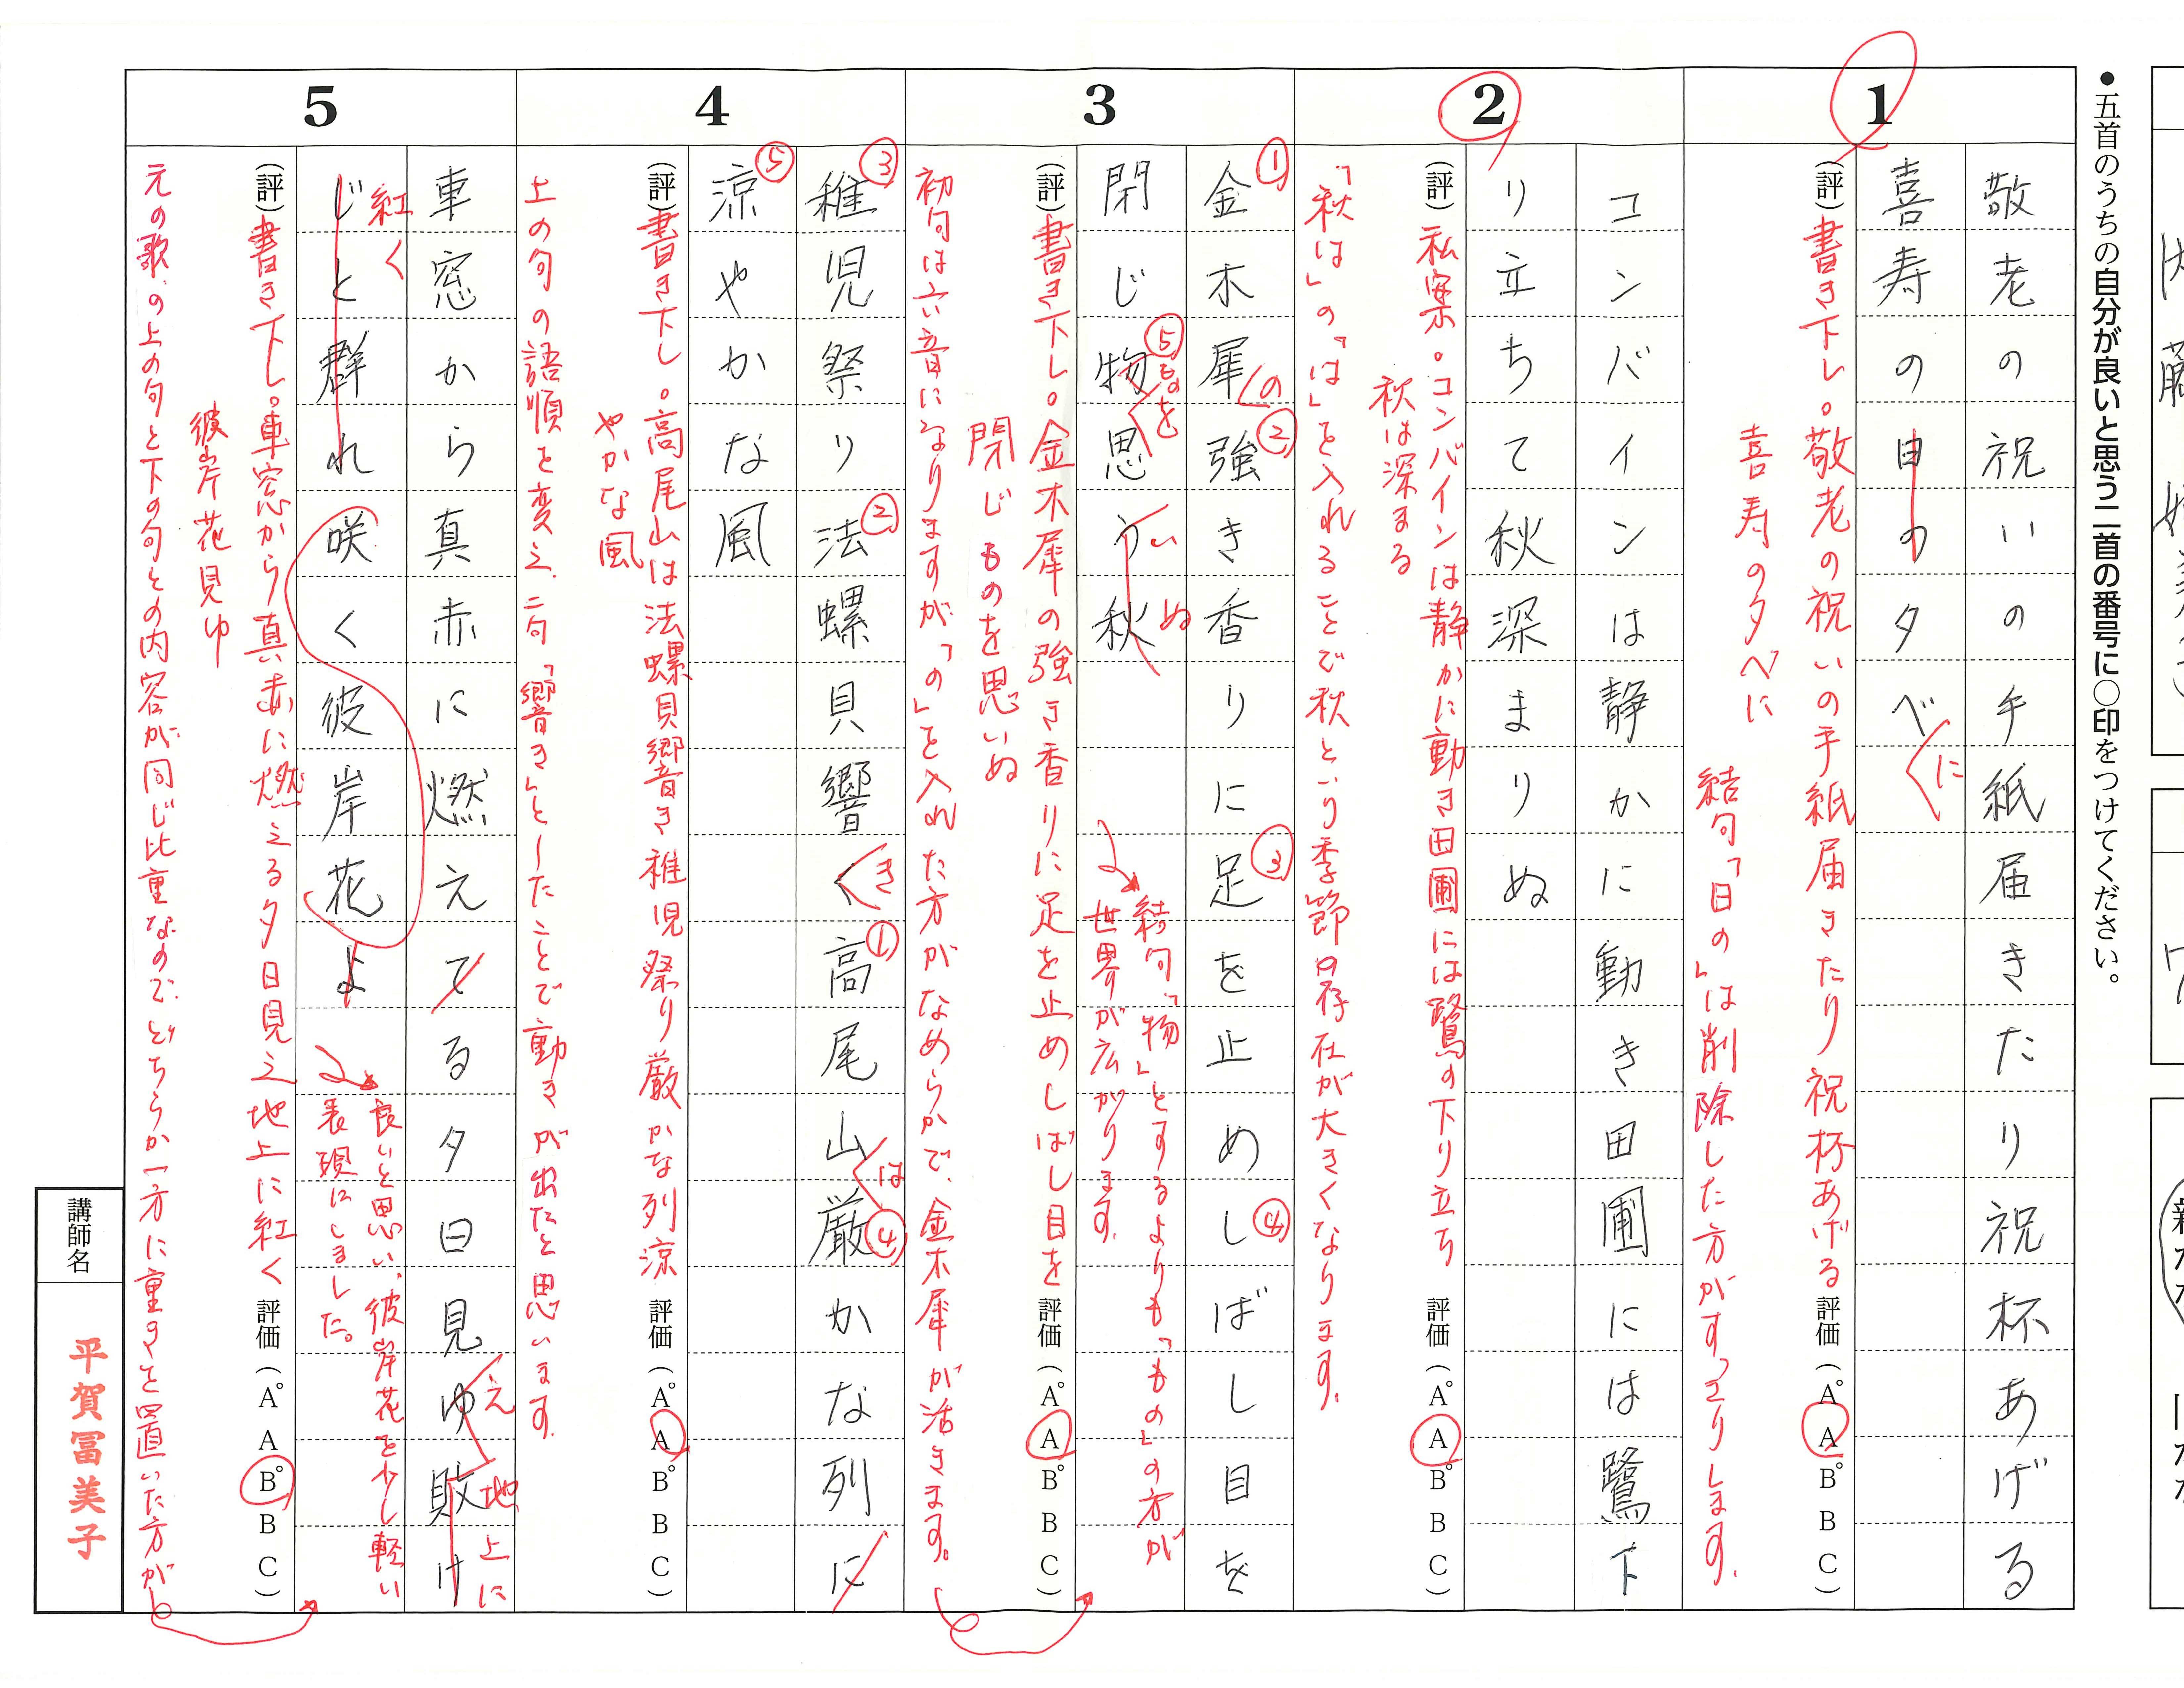 ●五首のうちの自分が良いと思う二首の番号に○印をつけてください。
1
敬老の祝いの手紙届きたり祝杯あげる
喜寿の日の夕べ
に
(評)書き下し。敬老の祝いの手紙届きたり祝杯あげる
喜寿の夕べに
結句「日の」は削除した方がすっきりします。
評価(A°AB°BC)
2
コンバインは静かに動き田圃には鷺下
り立ちて秋深まりぬ
(評)私案。コンバインは静かに動き田圃には鷺の下り立ち
秋は深まる
「秋は」の「は」を入れることで秋という季節の存在が大きくなります。
評価(A°AB°BC)
3
①
金木犀強き香りに足を止めしばし目を
の
②
③
④
閉じ物思う秋
⑤
ものを
い
ぬ
結句「物」とするよりも「もの」の方が
世界が広がります。
(評)書き下し。金木犀の強き香りに足を止めしばし目を
閉じものを思いぬ
初句は六音になりますが「の」を入れた方がなめらかで、金木犀が活きます。
評価(A°AB°BC)
4
③
稚児祭り法螺貝響く高尾山厳かな列に
②
き
①
は
④
⑤
涼やかな風
(評)書き下し。高尾山は法螺貝響き稚児祭り厳かな列涼
やかな風
上の句の語順を変え、二句「響き」としたことで動きが出たと思います。
評価(A°AB°BC)
5
車窓から真赤に燃えてる夕日見ゆ敗け
え
地上に
じと群れ咲く彼岸花よ
紅く
良いと思い、彼岸花を少し軽い
表現にしました。
(評)書き下し。車窓から真赤に燃える夕日見え地上に紅く
彼岸花見ゆ
元の歌の上の句と下の句との内容が同じ比重なので、どちらか一方に重きを置いた方が
評価(A°AB°BC)
講師名
平賀冨美子